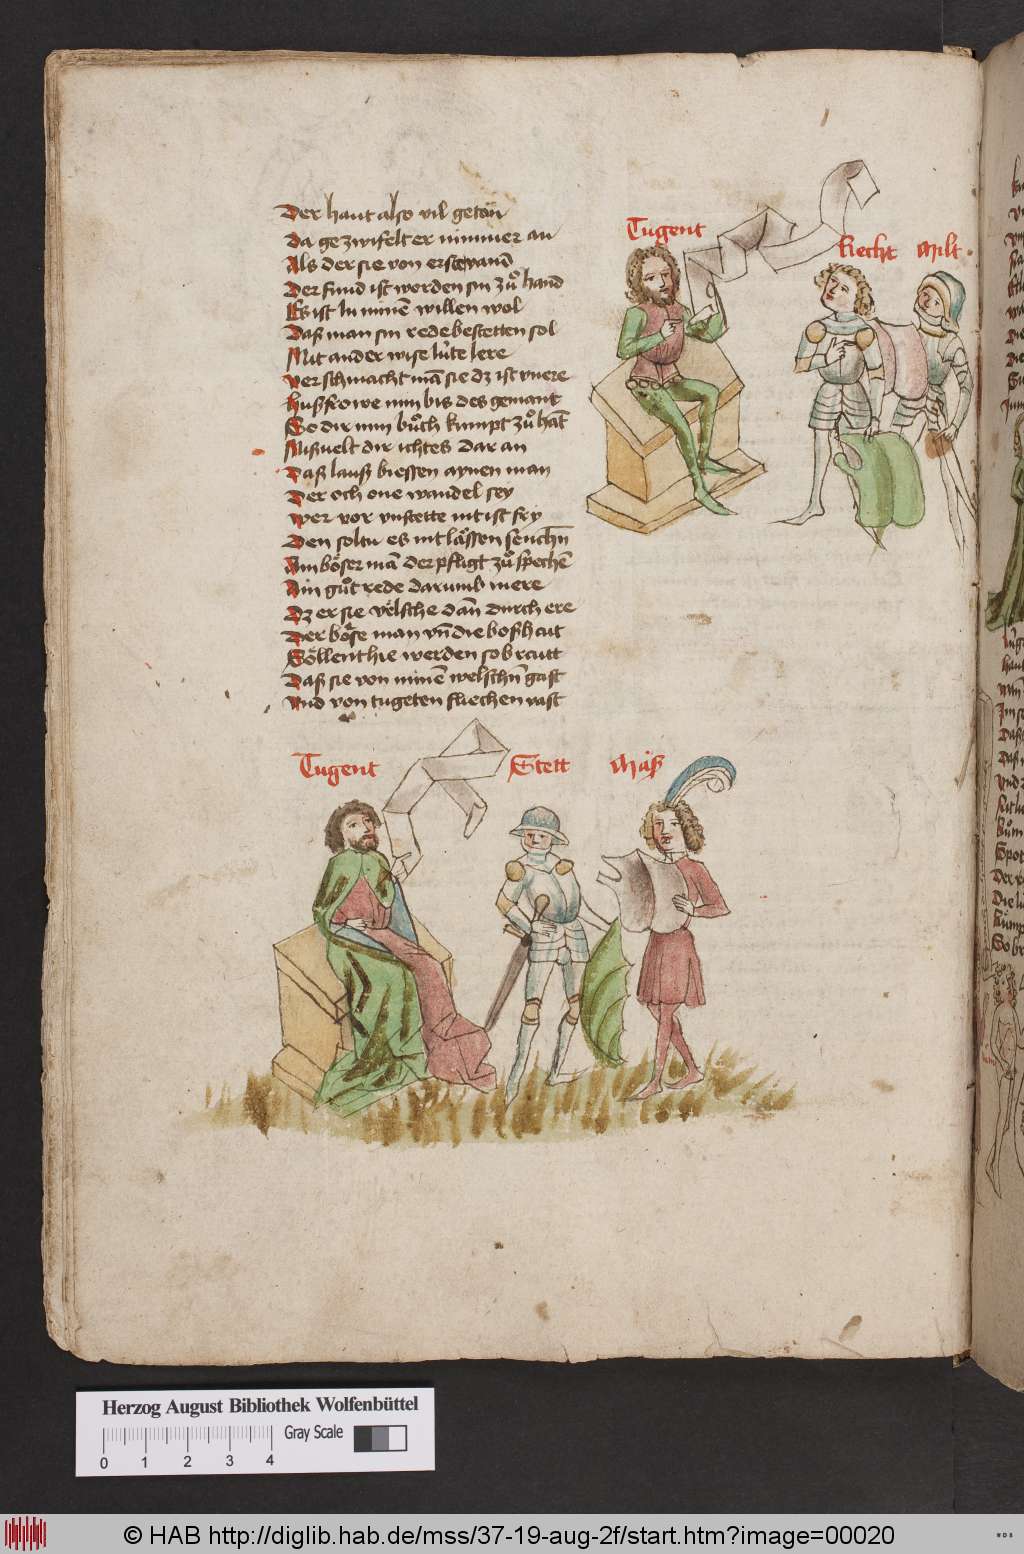 Der haut also vil getān
Da ge zwifelt er nimmer an
Als der sie von erste vand
Der sind ist worden sin zuͦ hand
Es ist In minē willen wol
Daß man sin rede bestetten sol
Mit ander wise lüte lere
ver schmacht mā sie dz ist vnere
hußfrowe nun bis des gemant
So dir min buͦch kumpt zuͦ hāt
Mißuelt dir ichtes dar an
Daß lauß biessen aynen man
Der och one wandel sey
wer vor vnstette nit ist fry
Den soltu es nit laͤssen senchn̄
Ain boͤser mā der pfligt zuͦ spechē
Ain guͦt rede darumb mere
Dz er sie velsche dān durch ere
Der boͤse man vn̄ die boßhait
Soͤllent hie werden so braitt
Daß sie von minē welschn̄ gast
Vnd von tugeten fliechen vast
Tugent
Recht Milt
Tugent Stett Mäß
Herzog August Bibliothek Wolfenbüttel
Gray Scale
0 1 2 3 4
© HAB http://diglib.hab.de/mss/37-19-aug-2f/start.htm?image=00020